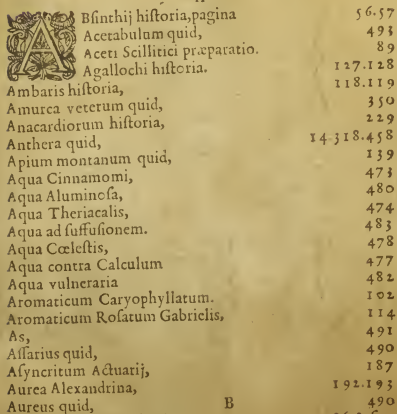 ABſinthij hiſtoria,pagina 56.57
Acetabulum quid, 493
Aceti Scillitici præparatio. 89
Agallochi hiſtoria. 127.128
Ambaris hiſtoria, 118.119
Amurca veterum quid, 350
Anacardiorum hiſtoria, 229
Anthera quid, 14.318.458
Apium montanum quid, 139
Aqua Cinnamomi, 473
Aqua Aluminoſa, 480
Aqua Theriacalis, 474
Aqua ad ſuffuſionem. 483
Aqua Cœleſtis, 478
Aqua contra Calculum 477
Aqua vulneraria 482
Aromaticum Caryophyllatum. 102
Aromaticum Roſatum Gabrielis, 114
As, 491
Aſſarius quid, 490
Aſyncritum Actuarij, 187
Aurea Alexandrina, 192.193
Aureus quid, 490
B